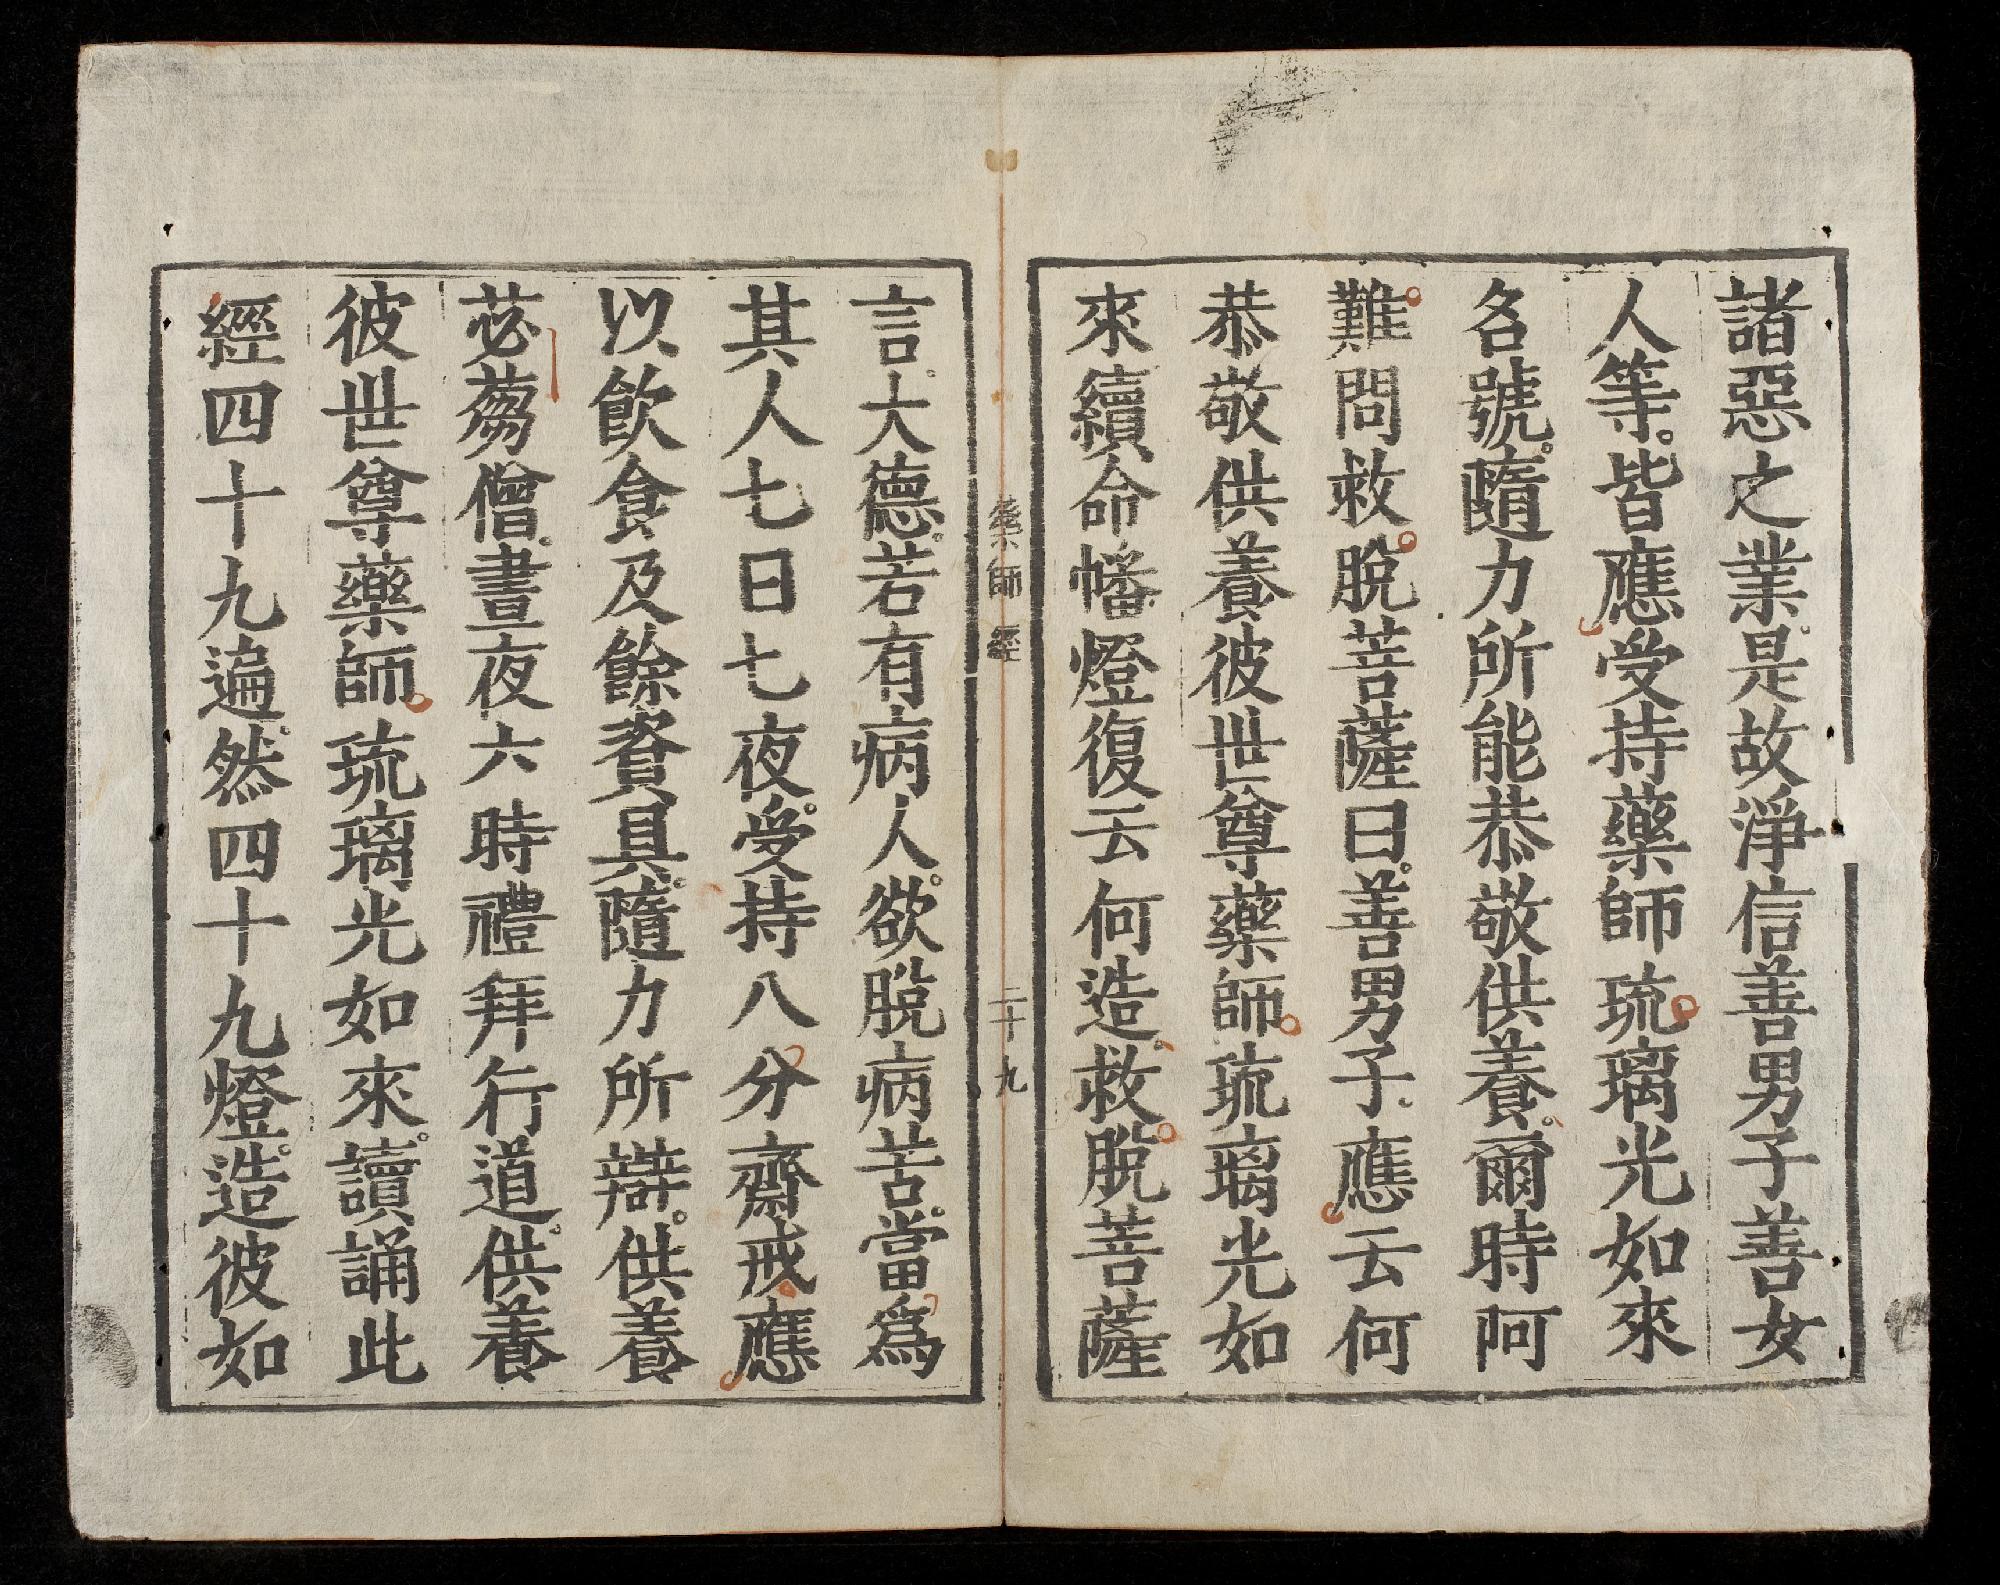 諸惡之業。是故淨信善男子善女
人等。皆應受持藥師琉璃光如來
名號。隨力所能恭敬供養。爾時阿
難問救脫菩薩曰。善男子。應云何
恭敬供養彼世尊藥師琉璃光如
來續命幡燈復云何造。救脫菩薩
藥師經
二十九
言。大德。若有病人。欲脫病苦。當爲
其人七日七夜。受持八分齋戒。應
以飲食及餘資具。隨力所辯。供養
苾芻僧。晝夜六時禮拜行道。供養
彼世尊藥師琉璃光如來。讀誦此
經四十九遍。然四十九燈。造彼如